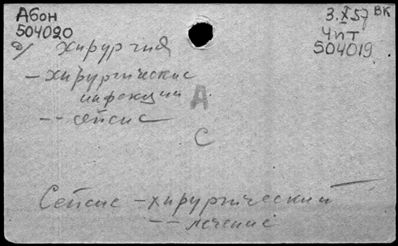 Абон
504020
3.X57 ВК
Чпт
504019
а) хирургия
- хирургические
инфекции
-- сепсис
А
С
Сепсис - хирургический -
-- лечение